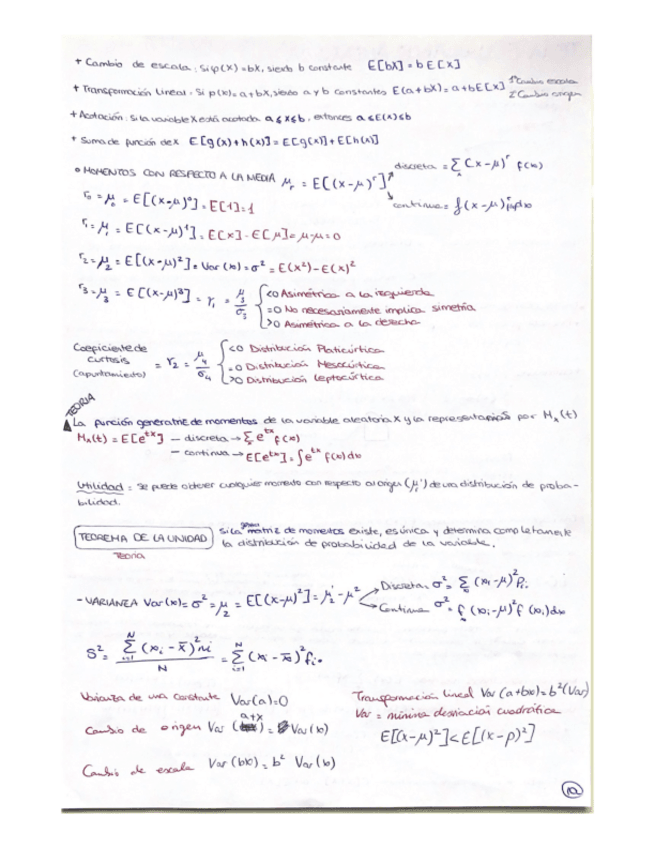 + Cambio de escala: Si p(X)=bX, siendo b constante E[bX]=bE[X]
+ Transformación Lineal: Si p(x)=a+bX, siendo a y b constantes E(a+bX)=a+bE[X] 1º Cambio escala
2º Cambio origen
+ Acotación: Si la variable X está acotada a≤X≤b, entonces a≤E(X)≤b
+ Suma de función de x E[g(x)+h(x)]=E[g(x)]+E[h(x)]
• MOMENTOS CON RESPECTO A LA MEDIA μr = E[(x-μ)^r]
discreta = Σ(x-μ)^r f(x)
continua = ∫(x-μ)^r f(x)dx
r0 = μ0 = E[(x-μ)^0] = E[1] = 1
r1 = μ1 = E[(x-μ)^1] = E[x] - E[μ] = μ-μ = 0
r2 = μ2 = E[(x-μ)^2] = Var(x) = σ² = E(x²)-E(x)²
r3 = μ3 = E[(x-μ)³] = γ1 = μ3/σ3
<0 Asimétrica a la izquierda
=0 No necesariamente implica simetría
>0 Asimétrica a la derecha
Coeficiente de curtosis (apuntamiento) = r2 = μ4/σ4
<0 Distribución Platicúrtica
=0 Distribución Mesocúrtica
>0 Distribución Leptocúrtica
TEORIA
La función generatriz de momentos de la variable aleatoria X y la representamos por Mx(t)
Mx(t) = E[e^tx] - discreta → Σ e^tx f(x)
- continua → E[e^tx] = ∫e^tx f(x)dx
Utilidad: se puede obtener cualquier momento con respecto al origen (μr') de una distribución de proba-
bilidad.
TEOREMA DE LA UNIDAD
Teoría
Si la matriz de momentos existe, es única y determina completamente
la distribución de probabilidad de la variable.
- VARIANZA Var(x) = σ² = μ2 = E[(x-μ)²] = μ2' - μ²
Discreta σ² = Σ(xi-μ)²Pi
Continua σ² = ∫(xi-μ)² f(xi)dx
S² = Σ(xi - x̄)²ni / N = Σ(xi - x̄)² fi
Varianza de una constante Var(a)=0
Cambio de origen Var (a+x) = Var(x)
Cambio de escala Var(bx) = b² Var(x)
Transformación lineal Var(a+bx)=b²(Var)
Var = mínima desviación cuadrática
E[(x-μ)²]<E[(x-p)²]
10